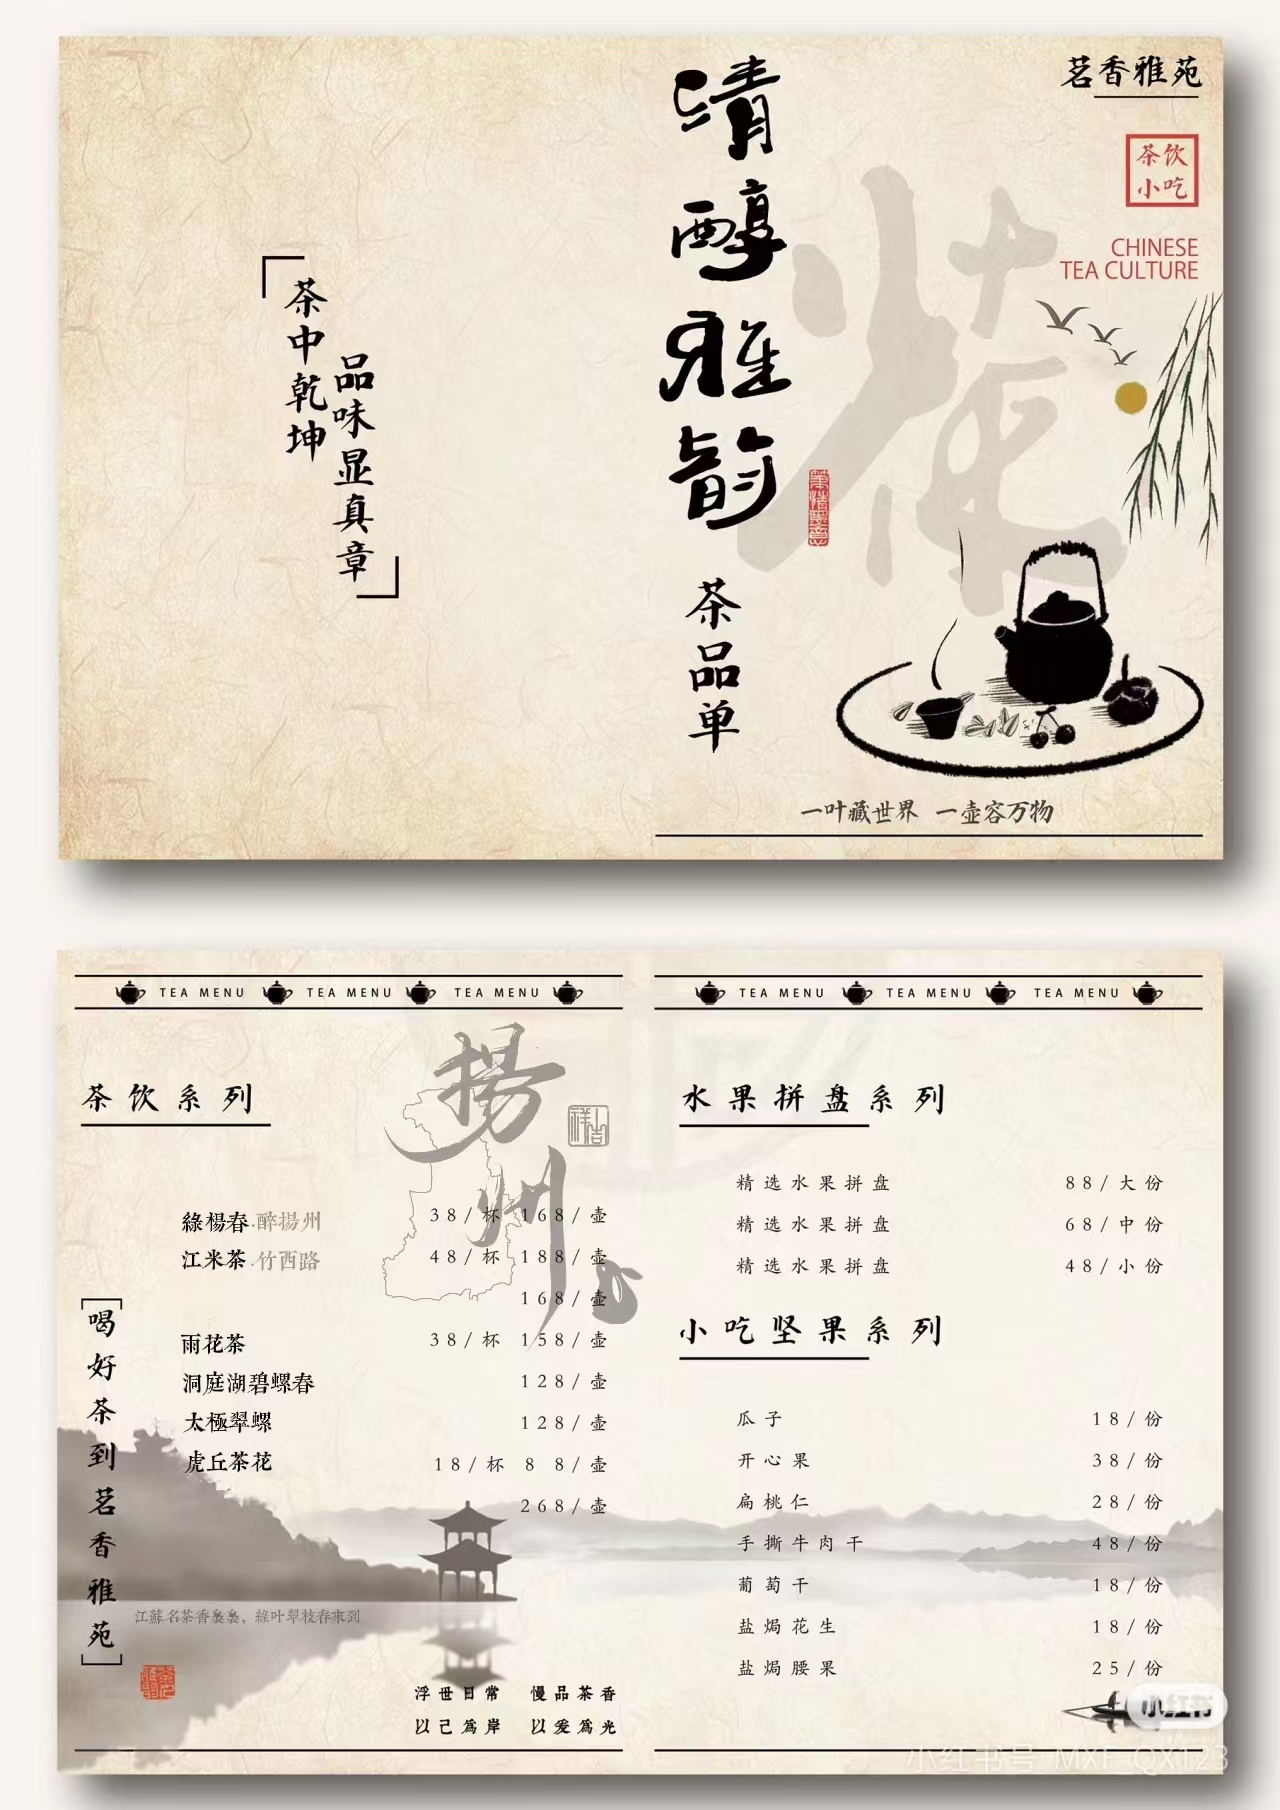 茶中乾坤
品味显真章
清醇雅韵
茶品单
茗香雅苑
茶饮
小吃
CHINESE
TEA CULTURE
茶
一叶藏世界 一壶容万物
TEA MENU TEA MENU TEA MENU
茶饮系列
揚州
吉祥
綠楊春·醉揚州 38/杯 168/壶
江米茶·竹西路 48/杯 188/壶
168/壶
雨花茶 38/杯 158/壶
洞庭湖碧螺春 128/壶
太極翠螺 128/壶
虎丘茶花 18/杯 8 8/壶
268/壶
喝好茶到茗香雅苑
江蘇名茶香裊裊，綠叶翠枝春來到
浮世日常 慢品茶香
以己為岸 以爱為光
TEA MENU TEA MENU TEA MENU
水果拼盘系列
精选水果拼盘 88/大份
精选水果拼盘 68/中份
精选水果拼盘 48/小份
小吃坚果系列
瓜子 18/份
开心果 38/份
扁桃仁 28/份
手撕牛肉干 48/份
葡萄干 18/份
盐焗花生 18/份
盐焗腰果 25/份
小红书
小红书号 MXF_QX123